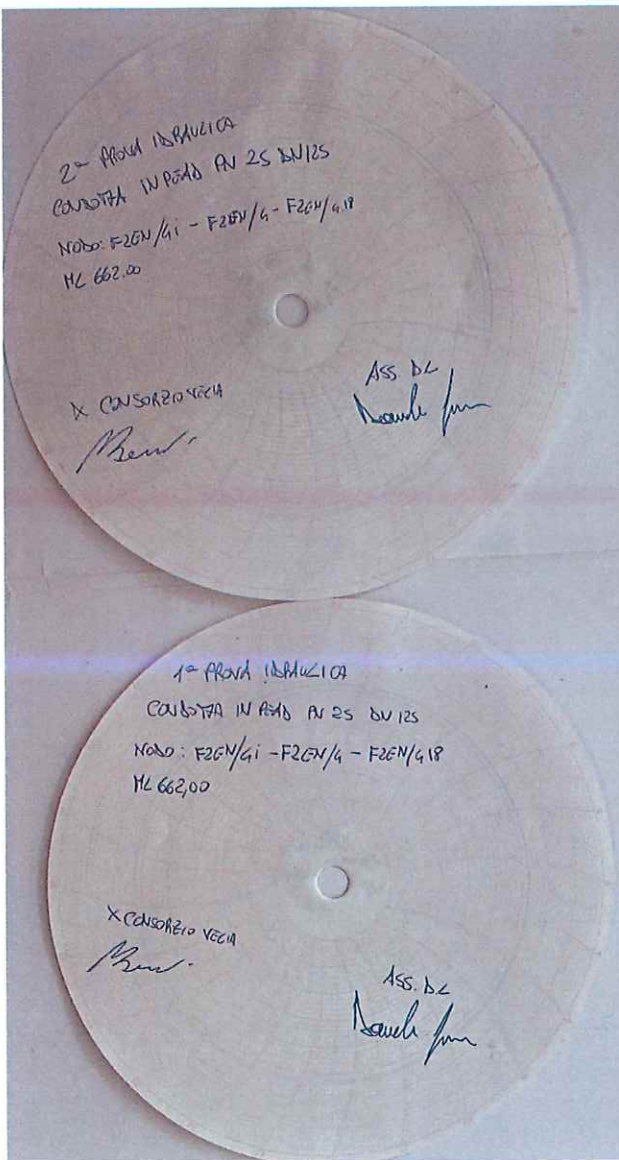 2ª PROVA IDRAULICA
CONDOTTA IN PEAD PN 25 DN 125
NODO: F2EN/4i - F2EN/4 - F2EN/4.18
ML 662.00
X CONSORZIO VECIA
ASS. DL
1ª PROVA IDRAULICA
CONDOTTA IN PEAD PN 25 DN 125
NODO: F2EN/4i - F2EN/4 - F2EN/4.18
ML 662,00
X CONSORZIO VECIA
ASS. DL